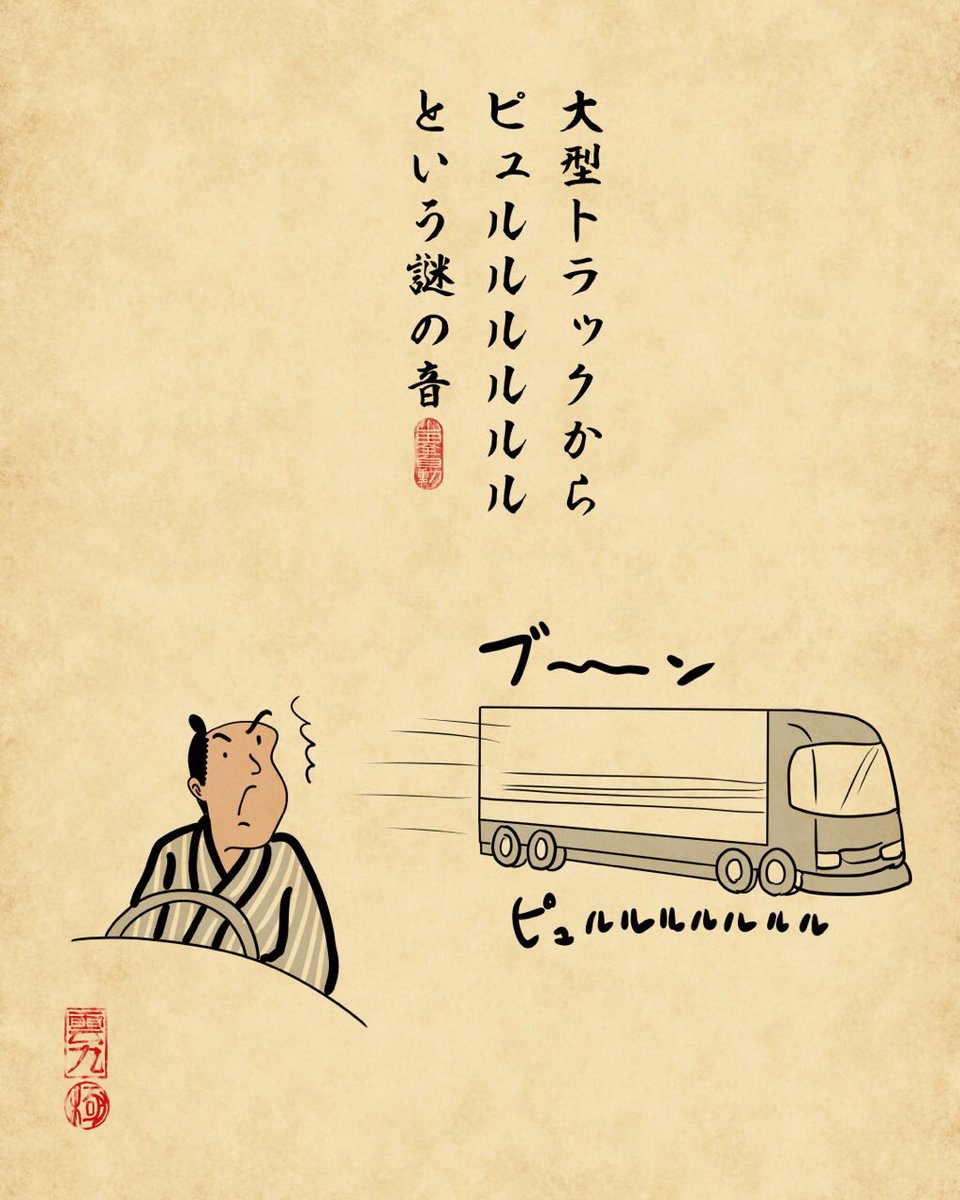 大型トラックから
ピュルルルルルル
という謎の音
ブーーン
ピュルルルルルルル
雲丸